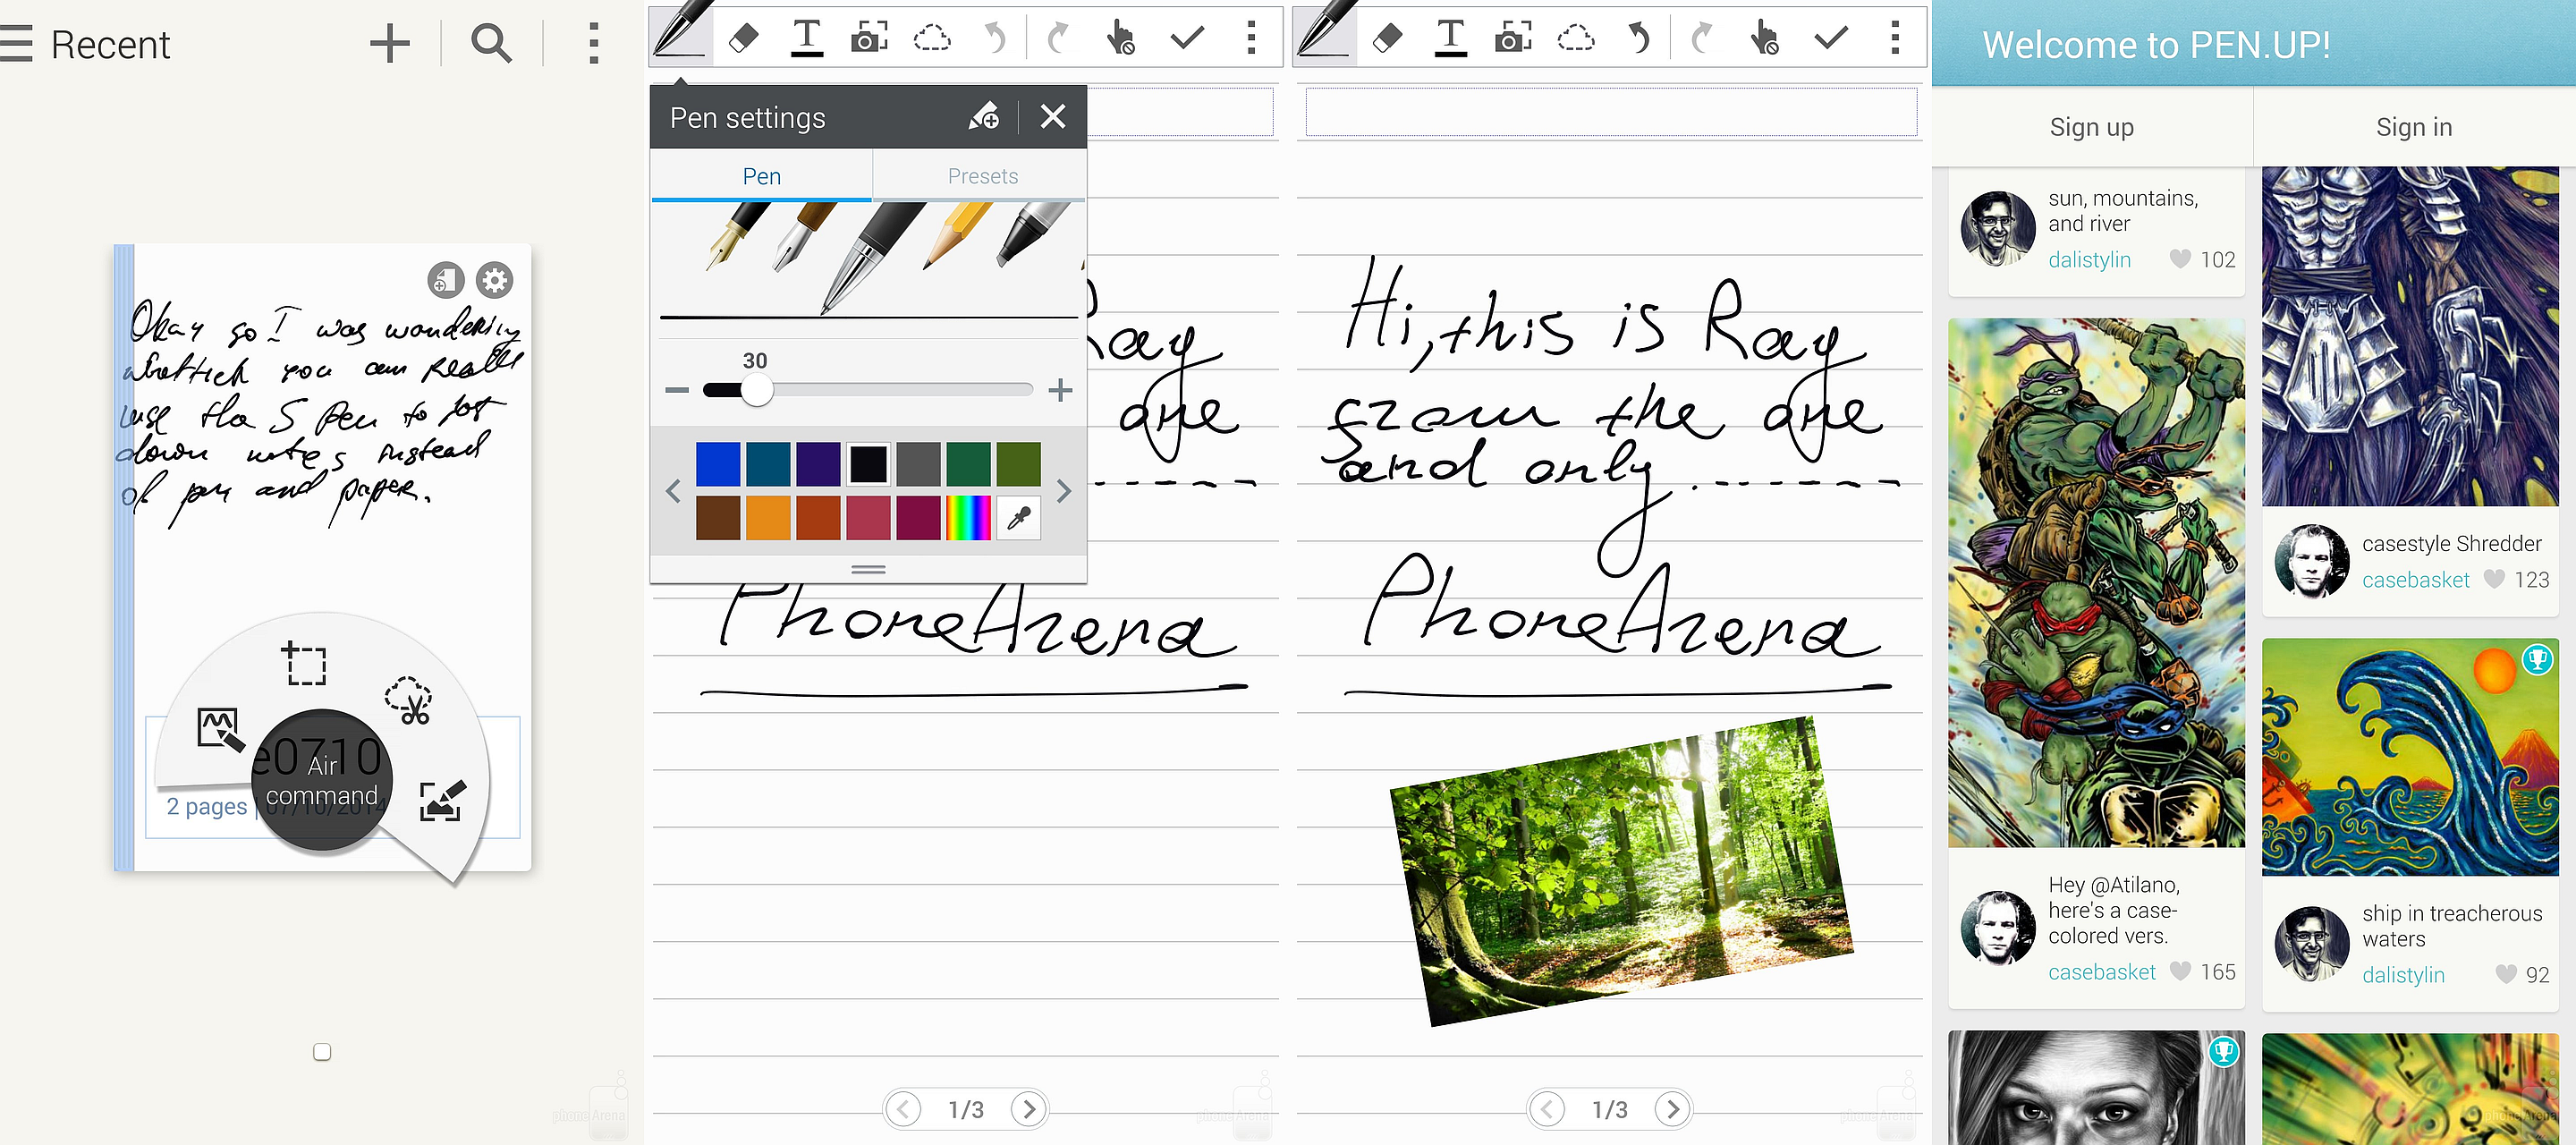 Recent
Okay so I was wondering
whethteh you can really
use the S Pen to jot
down notes instead
of pen and paper.
Air
command
2 pages | 07/10/2014
Pen settings
Pen
Presets
30
Ray
are
PhoneArena
1/3
Hi, this is Ray
from the are
and only.------
PhoneArena
1/3
Welcome to PEN.UP!
Sign up
Sign in
sun, mountains,
and river
dalistylin 102
Hey @Atilano,
here's a case-
colored vers.
casebasket 165
casestyle Shredder
casebasket 123
ship in treacherous
waters
dalistylin 92
phoneArena
phoneArena
phoneArena
phoneArena